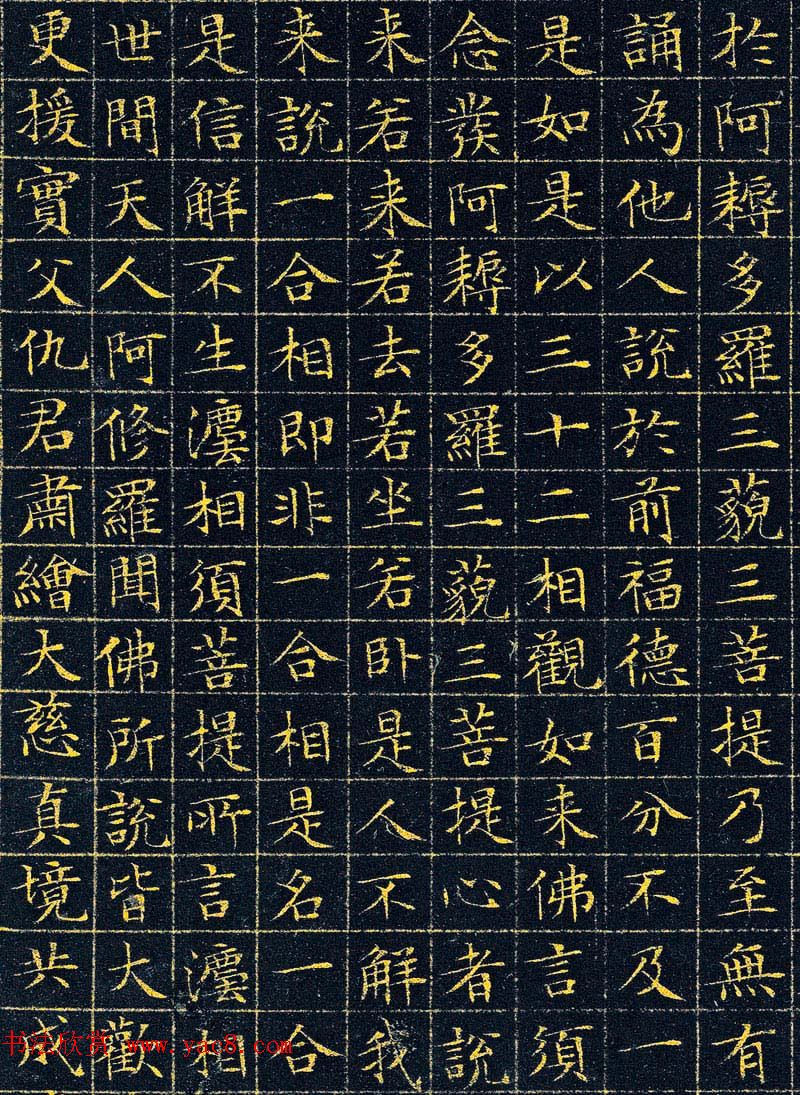 於阿耨多羅三藐三菩提乃至無有
誦為他人說於前福德百分不及一
是如是以三十二相觀如来佛言須
念發阿耨多羅三藐三菩提心者說
来若来若去若坐若卧是人不解我
来說一合相即非一合相是名一合
是信解不生法相須菩提所言法相
世間天人阿修羅聞佛所說皆大歡
更援實父仇君肅繪大慈真境共成
书法欣赏 www.yac8.com